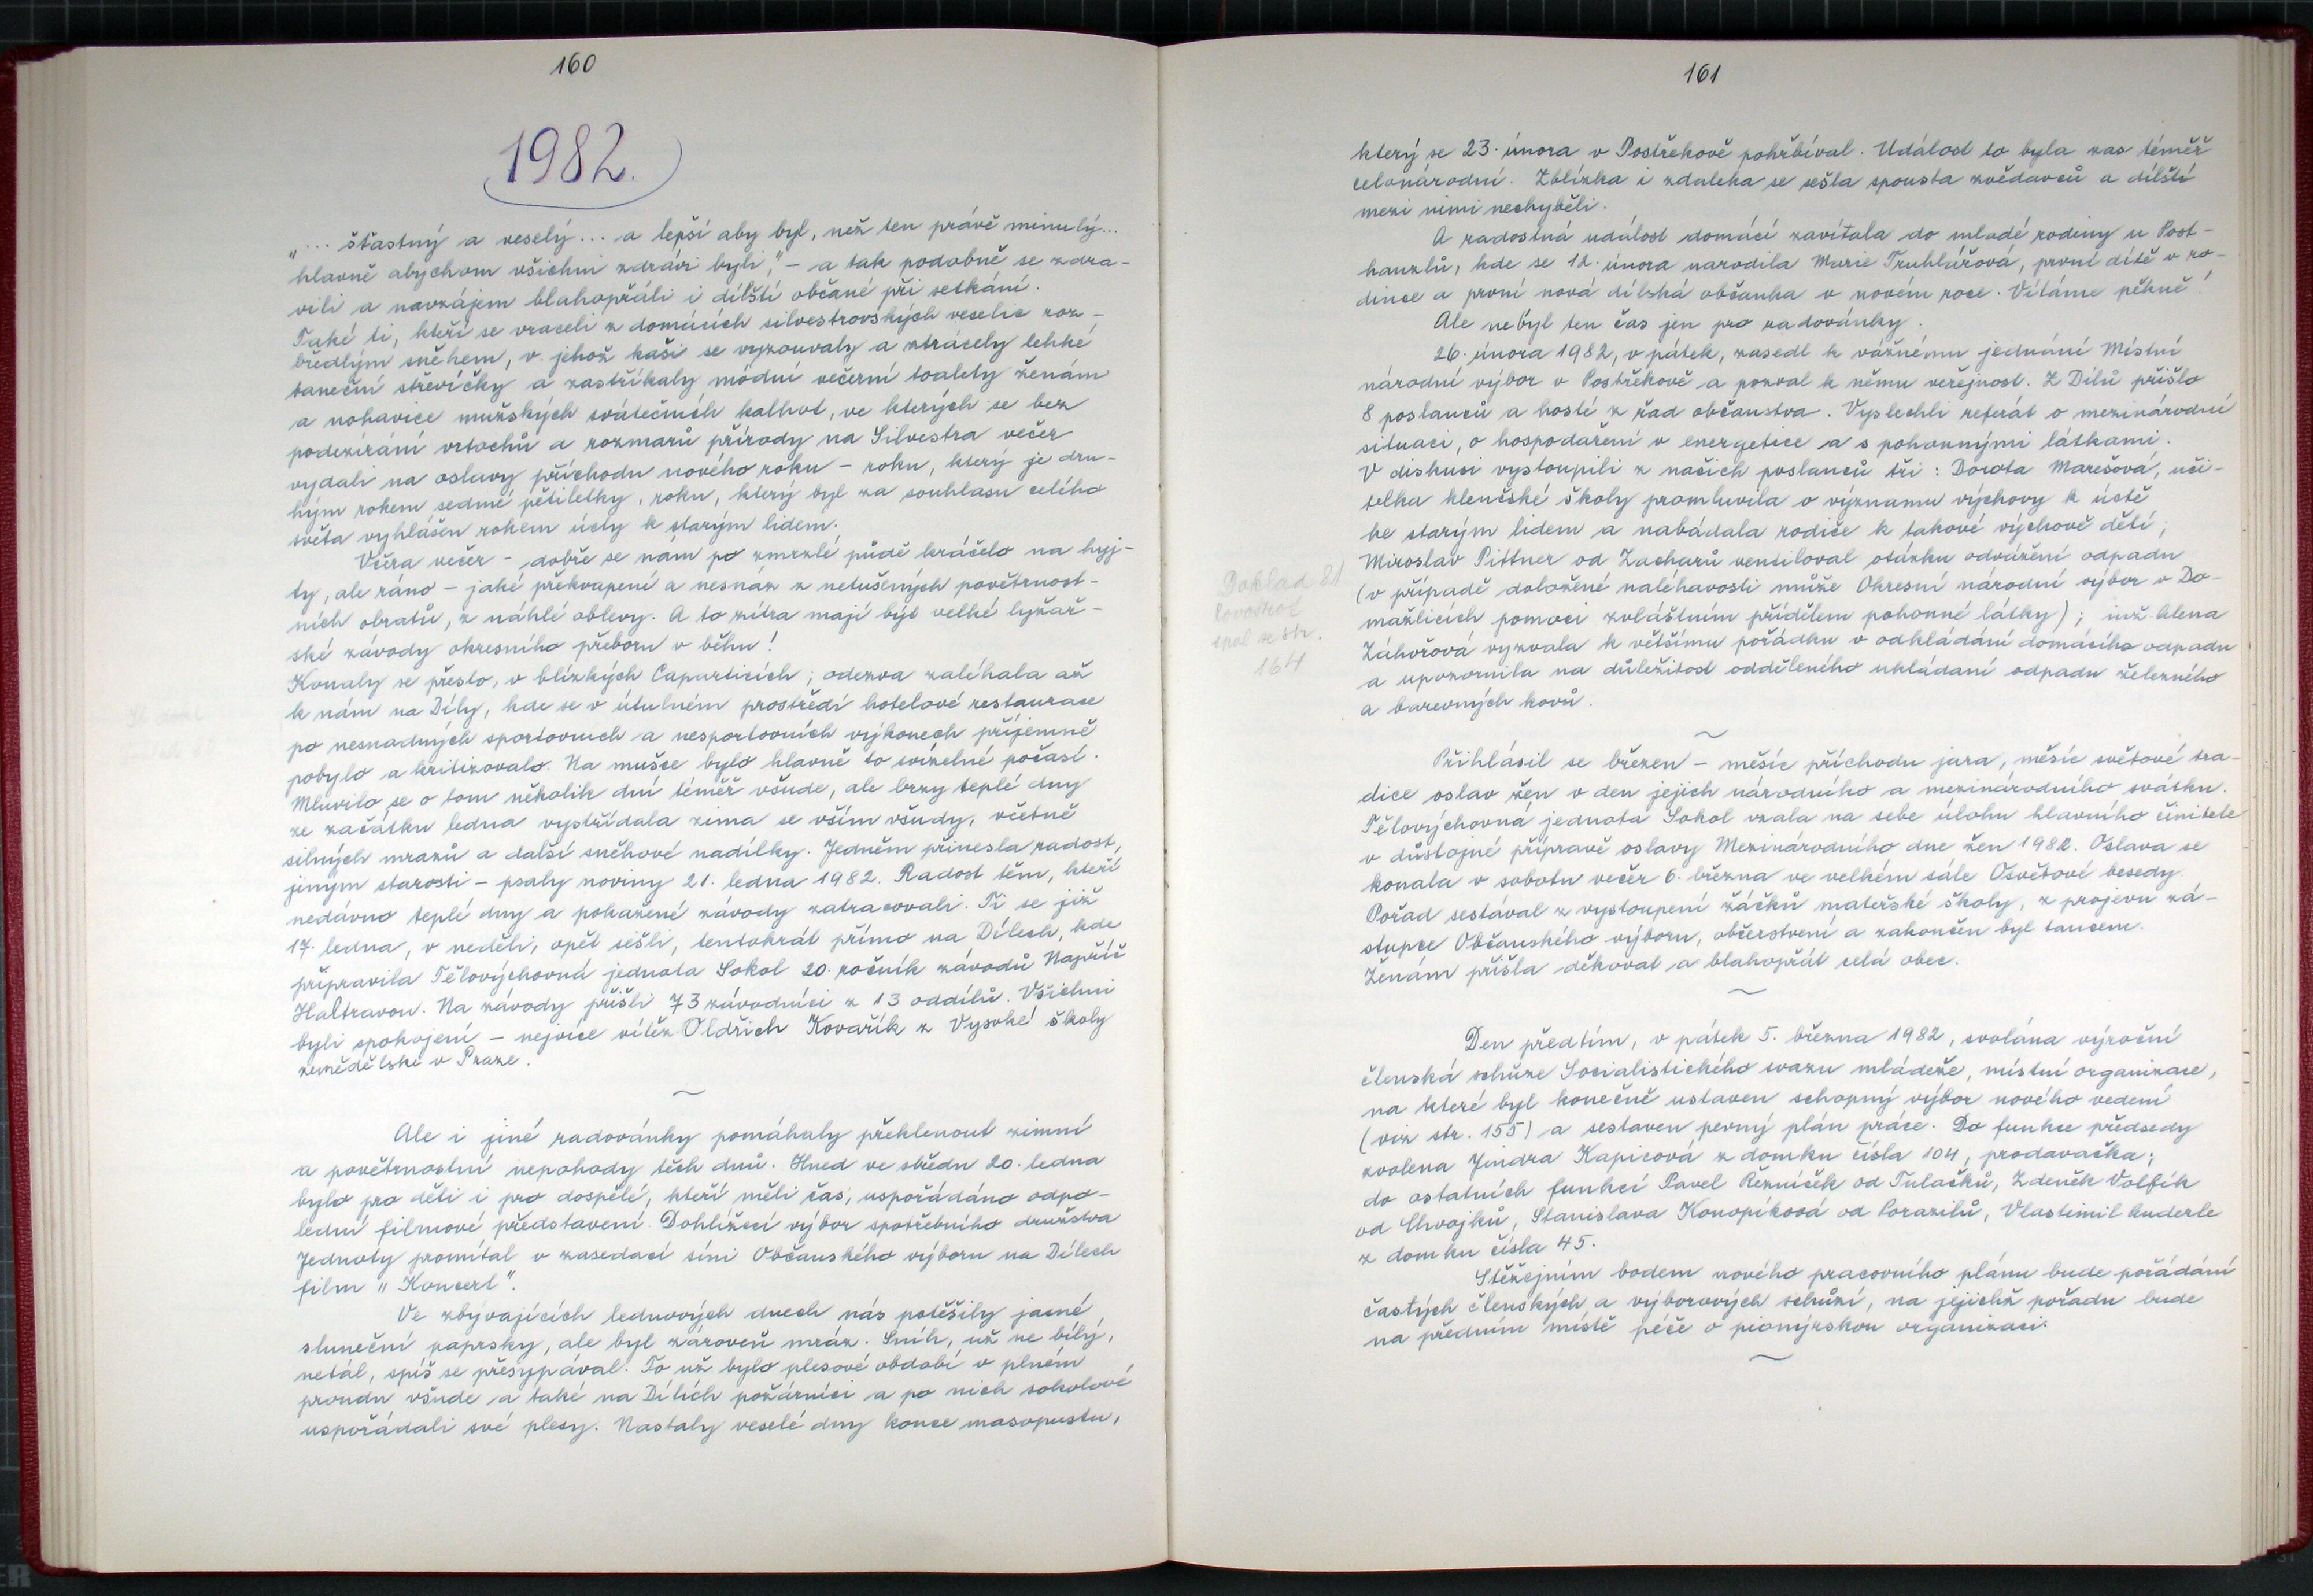 160
1982.
"... šťastný a veselý... a lepší aby byl, než ten právě minulý...
hlavně abychom všichni zdrávi byli," – a tak podobně se zdra-
vili a navzájem blahopřáli i dílští občané při setkání.
Také ti, kteří se vraceli z domácích silvestrovských veselic roz-
bředlým sněhem, v jehož kaši se vyzouvaly a ztrácely lehké
taneční střevíčky a zastříkaly módní večerní toalety ženám
a nohavice mužských svátečních kalhot, ve kterých se bez
podezírání vrtochů a rozmarů přírody na Silvestra večer
vydali na oslavy příchodu nového roku – roku, který je dru-
hým rokem sedmé pětiletky, roku, který byl za souhlasu celého
světa vyhlášen rokem úcty k starým lidem.
Včera večer – dobře se nám po zmrzlé půdě kráčelo na hyj-
ty, ale ráno – jaké překvapení a nesnáz z netušených povětrnost-
ních obratů, z náhlé oblevy. A to zítra mají být velké lyžař-
ské závody okresního přeboru v běhu!
Konaly se přesto, v blízkých Caparticích; odezva zaléhala až
k nám na Díly, kde se v útulném prostředí hotelové restaurace
po nesnadných sportovních a nesportovních výkonech příjemně
pobylo a kritizovalo. Na mušce bylo hlavně to svízelné počasí.
Mluvilo se o tom několik dní téměř všude, ale brzy teplé dny
ze začátku ledna vystřídala zima se vším všudy, včetně
silných mrazů a další sněhové nadílky. Jedněm přinesla radost,
jiným starosti – psaly noviny 21. ledna 1982. Radost těm, kteří
nedávno teplé dny a pokažené závody zatracovali. Ti se již
17. ledna, v neděli, opět sešli, tentokrát přímo na Dílech, kde
připravila Tělovýchovná jednota Sokol 20. ročník závodů Napříč
Haltravou. Na závody přišli 73 závodníci z 13 oddílů. Všichni
byli spokojeni – nejvíce vítěz Oldřich Kovařík z Vysoké školy
zemědělské v Praze.
~
Ale i jiné radovánky pomáhaly překlenout zimní
a povětrnostní nepohody těch dnů. Hned ve středu 20. ledna
bylo pro děti i pro dospělé, kteří měli čas, uspořádáno odpo-
lední filmové představení. Dohlížecí výbor spotřebního družstva
Jednoty promítal v zasedací síni Občanského výboru na Dílech
film "Koncert".
Ve zbývajících lednových dnech nás potěšily jasné
sluneční paprsky, ale byl zároveň mráz. Sníh, už ne bílý,
netál, spíš se přesypával. To už bylo plesové období v plném
proudu všude a také na Dílích požárníci a po nich sokolové
uspořádali své plesy. Nastaly veselé dny konce masopustu,
161
který se 23. února v Postřekově pohřbíval. Událost to byla zas téměř
celonárodní. Zblízka i zdaleka se sešla spousta zvědavců a dílští
mezi nimi nechyběli.
A radostná událost domácí zavítala do mladé rodiny u Post-
hanzlů, kde se 12. února narodila Marie Truhlářová, první dítě v ro-
dince a první nová dílská občanka v novém roce. Vítáme pěkně!
Ale nebyl ten čas jen pro radovánky.
26. února 1982, v pátek, zasedl k vážnému jednání Místní
národní výbor v Postřekově a pozval k němu veřejnost. Z Dílů přišlo
8 poslanců a hosté z řad občanstva. Vyslechli referát o mezinárodní
situaci, o hospodaření v energetice a s pohonnými látkami.
V diskusi vystoupili z našich poslanců tři: Dorota Marešová, uči-
telka klenčské školy promluvila o významu výchovy k úctě
ke starým lidem a nabádala rodiče k takové výchově dětí;
Miroslav Pittner od Zacharů ventiloval otázku odvážení odpadu
(v případě doložené naléhavosti může Okresní národní výbor v Do-
mažlicích pomoci zvláštním přídělem pohonné látky); inž. Alena
Záhořová vyzvala k většímu pořádku v odkládání domácího odpadu
a upozornila na důležitost odděleného ukládání odpadu železného
a barevných kovů.
Doklad 81
spol se str.
164
~
Přihlásil se březen – měsíc příchodu jara, měsíc světové tra-
dice oslav žen v den jejich národního a mezinárodního svátku.
Tělovýchovná jednota Sokol vzala na sebe úlohu hlavního činitele
v důstojné přípravě oslavy Mezinárodního dne žen 1982. Oslava se
konala v sobotu večer 6. března ve velkém sále Osvětové besedy.
Pořad sestával z vystoupení žáčků mateřské školy, z projevu zá-
stupce Občanského výboru, občerstvení a zakončen byl tancem.
Ženám přišla děkovat a blahopřát celá obec.
~
Den předtím, v pátek 5. března 1982, svolána výroční
členská schůze Socialistického svazu mládeže, místní organizace,
na které byl konečně ustaven schopný výbor nového vedení
(viz str. 155) a sestaven pevný plán práce. Do funkce předsedy
zvolena Jindra Kapicová z domku čísla 104, prodavačka;
do ostatních funkcí Pavel Řezníček od Tulačků, Zdeněk Volfík
od Chvojků, Stanislava Konopíková od Porazilů, Vlastimil Anderle
z domku čísla 45.
Stěžejním bodem nového pracovního plánu bude pořádání
častých členských a výborových schůzí, na jejichž pořadu bude
na předním místě péče o pionýrskou organizaci.
~